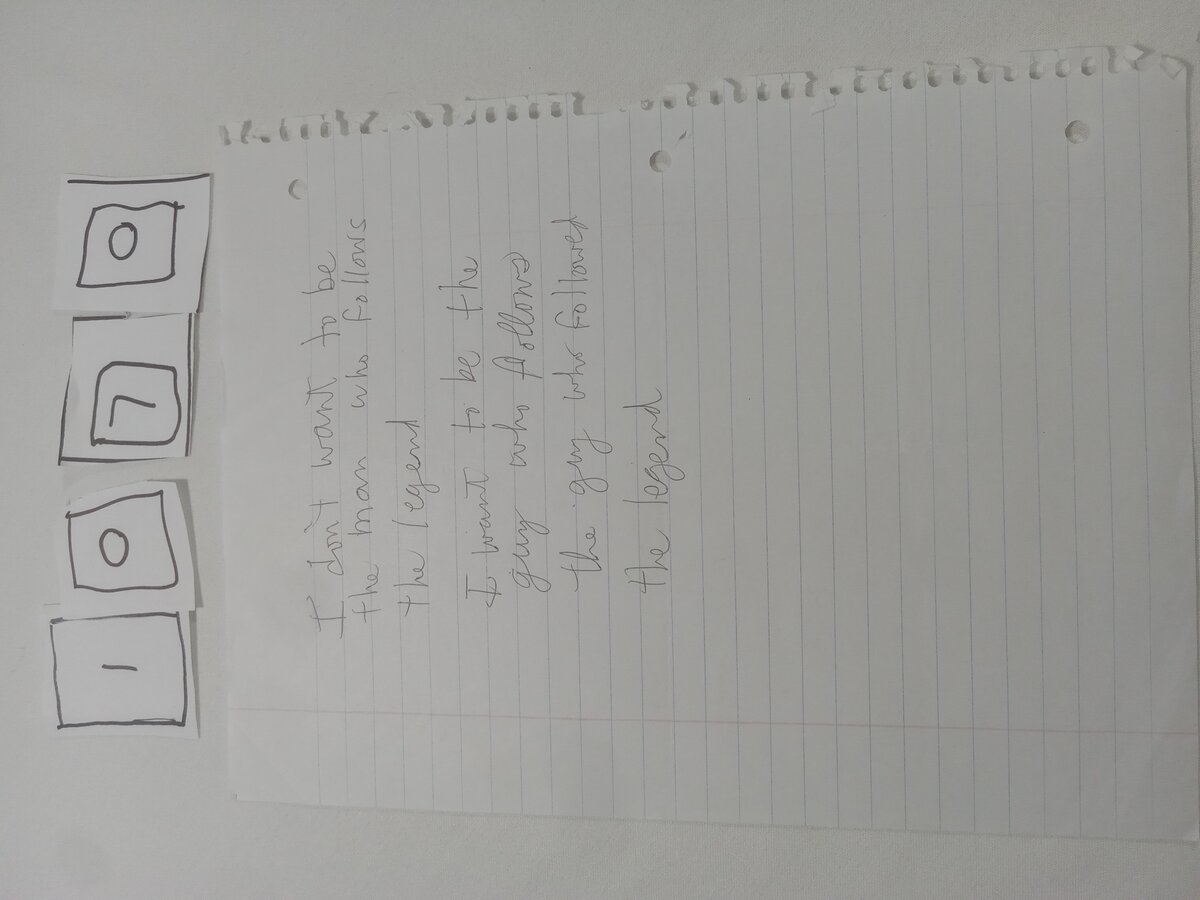 1 0 7 0
I don't want to be
the man who follows
the legend
I want to be the
guy who follows
the guy who followed
the legend